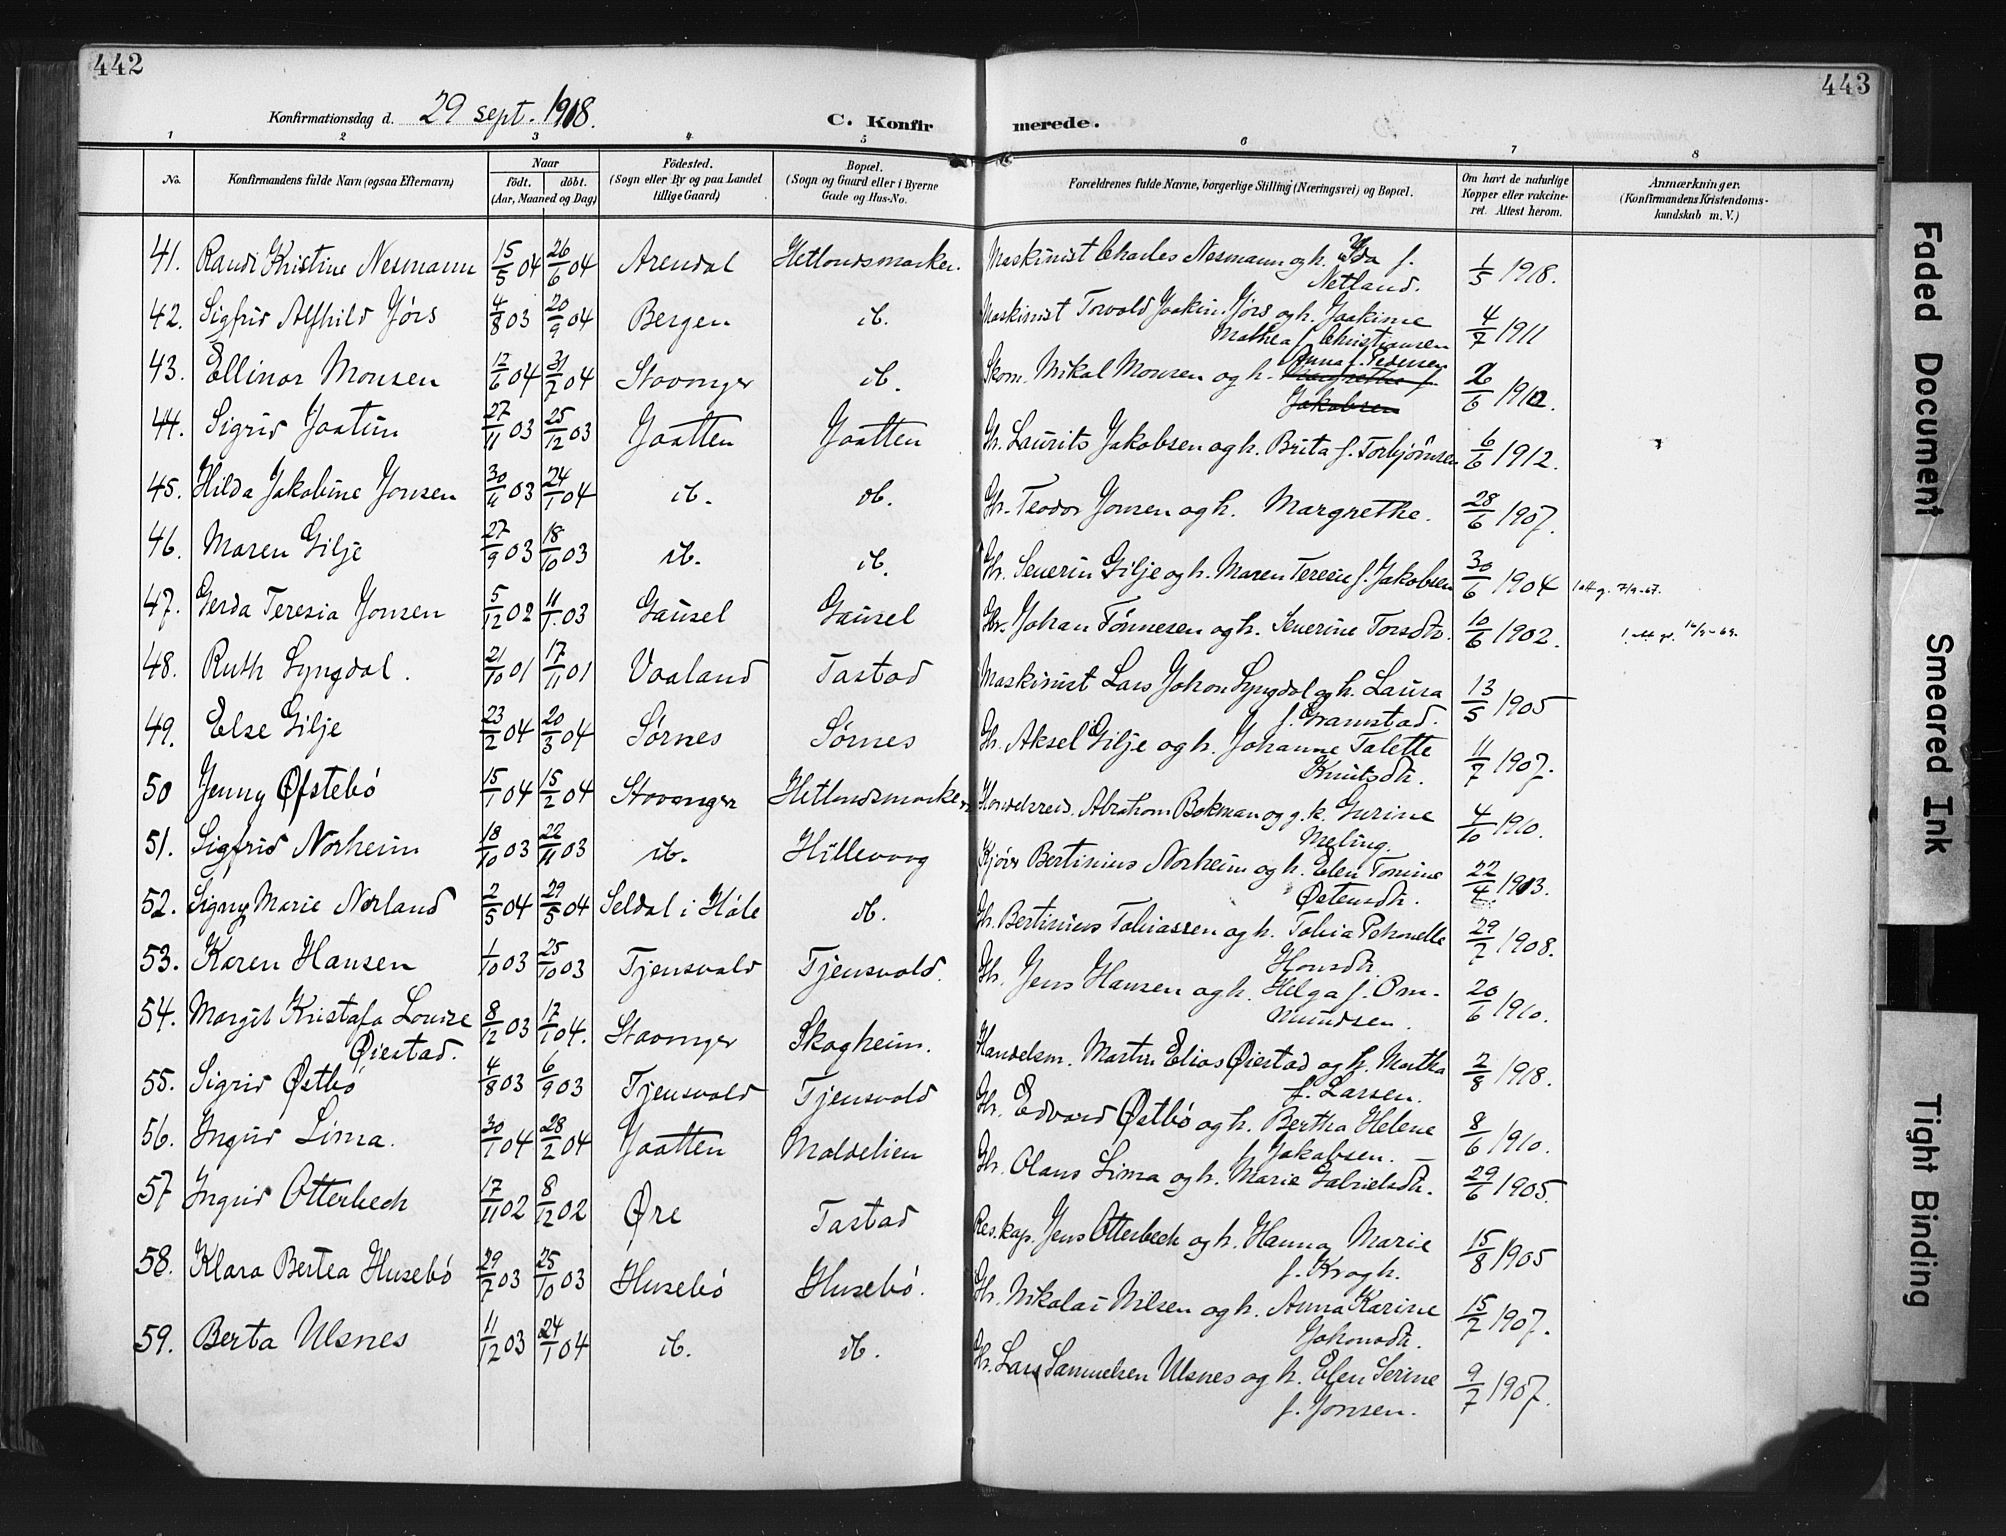 442
443
Konfirmationsdag d. 29 sept. 1918.
C. Konfirmerede.
1 2 3 4 5 6 7 8
No.
Konfirmandens fulde Navn (ogsaa Efternavn)
Naar
født. døbt.
(Aar, Maaned og Dag)
Fødested.
(Sogn eller By og paa Landet
tillige Gaard)
Bopæl.
(Sogn og Gaard eller i Byerne
Gade og Hus-No.
Forældrenes fulde Navne, borgerlige Stilling (Næringsvei) og Bopæl.
Om havt de naturlige
Kopper eller vakcine-
ret. Attest herom.
Anmærkninger.
(Konfirmandens Kristendoms-
kundskab m. V.)
41. Randi Kristine Nesmann 15/5 04 26/6 04 Arendal Hetlandsmarken. Maskinist Charles Nesmann og h. Ida f.
Netland. 1/5 1918.
42. Sigfrid Alfhild Jørs 4/8 03 20/9 04 Bergen ib. Maskinist Torvald Joakim Jørs og h. Joakime
Mathea f. Christiansen 4/7 1911
43. Ellinor Monsen 12/6 04 31/7 04 Stavanger ib. Skom. Mikal Monsen og h. Anna f. Pedersen
Margrethe f.
Jakobsen 2/6 1912.
44. Sigrid Jaatun 27/11 03 25/12 03 Jaatten Jaatten Gbr. Laurits Jakobsen og h. Brita f. Torbjørnsen 6/6 1912.
45. Hilda Jakobine Jonsen 30/11 03 24/1 04 ib. ib. Gbr. Teodor Jonsen og h. Margrethe. 28/6 1907.
46. Maren Gilje 27/9 03 18/10 03 ib. ib. Gbr. Severin Gilje og h. Maren Teresie f. Jakobsen 30/6 1904 1 att g. 7/9-67.
47. Gerda Teresia Jonsen 5/12 02 11/1 03 Gausel Gausel Gbr. Johan Tønnesen og h. Severine Torsdtr. 10/6 1902.
48. Ruth Lyngdal. 21/10 01 17/11 01 Vaaland Tastad Maskinist Lars Johan Lyngdal og h. Laura
f. Gramstad. 13/5 1905
49. Else Gilje 23/2 04 20/3 04 Sørnes Sørnes Gbr. Aksel Gilje og h. Johanne Talette
Knutsdtr. 11/7 1907.
50 Jenny Øfstebö 15/1 04 15/2 04 Stavanger Hetlandsmarken Handelsreis. Abraham Bokman og g. k. Gurine
Meling. 4/10 1910.
51. Sigfrid Norheim 18/10 03 22/11 03 ib. Hillevaag Kjører Bertinius Norheim og h. Elen Tomine
Østensdtr. 22/4 1913.
52. Signy Marie Norland 2/5 04 29/5 04 Seldal i Høle ib. Gbr. Bertinius Tobiassen og h. Tobia Petronelle
Hansdtr. 29/7 1908.
53. Karen Hansen 1/10 03 25/10 03 Tjensvold Tjensvold. Gbr. Jens Hansen og h. Helga f. Om-
mundsen. 20/6 1910.
54. Margit Kristafa Louise
Øiestad. 8/12 03 17/1 04. Stavanger Skogheim. Handelsm. Martin Elias Øiestad og h. Martha
f. Larsen. 2/8 1918.
55. Sigrid Østbö 4/8 03 6/9 03 Tjensvold Tjensvold Gbr. Edvard Østbö og h. Bertha Helene
f. Jakobsen. 8/6 1910.
56. Ingrid Lima. 30/1 04 28/2 04 Jaatten Maldelien Gbr. Olaus Lima og h. Marie Gabrielsdtr. 29/6 1905.
57 Ingrid Otterbech 17/11 02 8/12 02 Øre Tastad Res. kap. Jens Otterbech og h. Hanna Marie
f. Krogh. 15/8 1905
58. Klara Bertea Husebö 29/7 03 25/10 03 Husebö Husebö. Gbr. Nikolai Nilsen og h. Anna Karine
Johansdtr. 15/7 1907.
59. Berta Ulsnes 11/12 03 24/1 04 ib. ib. Gbr. Lars Samuelsen Ulsnes og h. Elen Serine
f. Jonsen. 9/7 1907.
Faded Document
Smeared Ink
Tight Binding